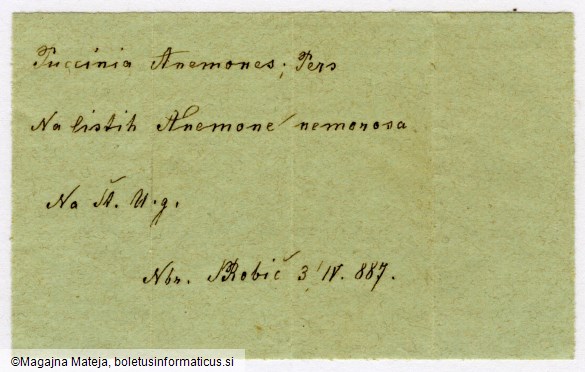 Puccinia Anemones; Pers
Na listih Anemone nemorosa
Na Št. U.g.
Nbr. SRobič 3/IV. 887.
©Magajna Mateja, boletusinformaticus.si